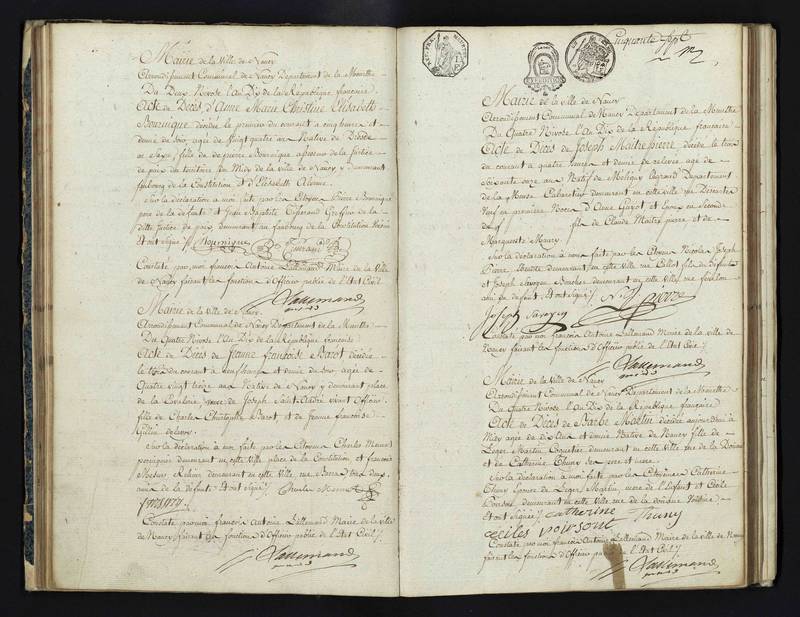 Mairie de la Ville de Nancy
Arrondissement Communal de Nancy Département de la Meurthe
Du Deux Nivose l'An Dix de la République française
Acte de Décès d'Anne Marie Christine Elisabeth
décédée le premier du courant à cinq heures et
demie du soir, agée de Vingt quatre ans Native de
fille de Pierre assesseur de la justice
de paix du territoire du Midy de la ville de Nancy y demeurant
faubourg de la Constitution et d'Elisabeth
Sur la déclaration à moi faite par les Citoyens Pierre
père de la défunte et Jean Baptiste Greffier de la
ditte justice de paix demeurant au faubourg de la Constitution
et ont signé
Constaté par moi françois Antoine Lallemand Maire de la Ville
de Nancy faisant les fonctions d'Officier public de l'Etat Civil
Lallemand
Mairie de la Ville de Nancy
Arrondissement Communal de Nancy Département de la Meurthe
Du Quatre Nivose l'An Dix de la République française
Acte de Décès de Jeanne françoise Barot décédée
le trois du courant à neuf heures et demie du soir agée de
Quatre vingt treize ans Native de Nancy y demeurant place
de la veuve de Joseph Saint André vivant Officier
fille de Charles Christophe Barot, et de Jeanne françoise
Sur la déclaration à moi faite par les Citoyens Charles
demeurant en cette ville place de la Constitution et françois
demeurant en cette ville, rue tous deux
amis de la défunte et ont signé Charles
Constaté par moi françois Antoine Lallemand Maire de la Ville
de Nancy faisant les fonctions d'Officier public de l'Etat Civil
Lallemand
Cinquante Sept
Mairie de la ville de Nancy
Arrondissement Communal de Nancy Département de la Meurthe
Du Quatre Nivose l'An Dix de la République française
Acte de Décès de Joseph Maitrepierre, décédé le trois
du courant à quatre heures et demie de relevée agé de
Soixante onze ans Natif de Département
de la Meuse Cabaretier demeurant en cette ville rue
Veuf en première Noces d'Anne et Epoux en Seconde
de fils de Claude Maitrepierre et de
Marguerite Maury
Sur la déclaration à nous faite par les Citoyens Nicolas Joseph
Pierre demeurant en cette ville rue Callot fils du défunt
et Joseph Savoyen demeurant en cette ville rue
ami du défunt et ont signé
Joseph Savoyen
Constaté par moi françois Antoine Lallemand Maire de la ville de
Nancy faisant les fonctions d'Officier public de l'Etat Civil
Lallemand
Mairie de la Ville de Nancy
Arrondissement Communal de Nancy Département de la Meurthe
Du Quatre Nivose l'An Dix de la République française
Acte de Décès de Barbe Martin décédée aujourd'hui à
Midy agée de dix Ans et demie Native de Nancy fille de
Leger Martin Coquetier demeurant en cette ville rue de la Douane
et de Catherine Thiriy ses père et mere
Sur la déclaration à moi faite par les Citoyennes Catherine
Thiriy Epouse de Leger Martin mere de l'Enfant et Cécile
demeurant en cette Ville rue de la
et ont signé Catherine Thiriy
Constaté par moi françois Antoine Lallemand Maire de la ville de Nancy
faisant les fonctions d'Officier public de l'Etat Civil
Lallemand